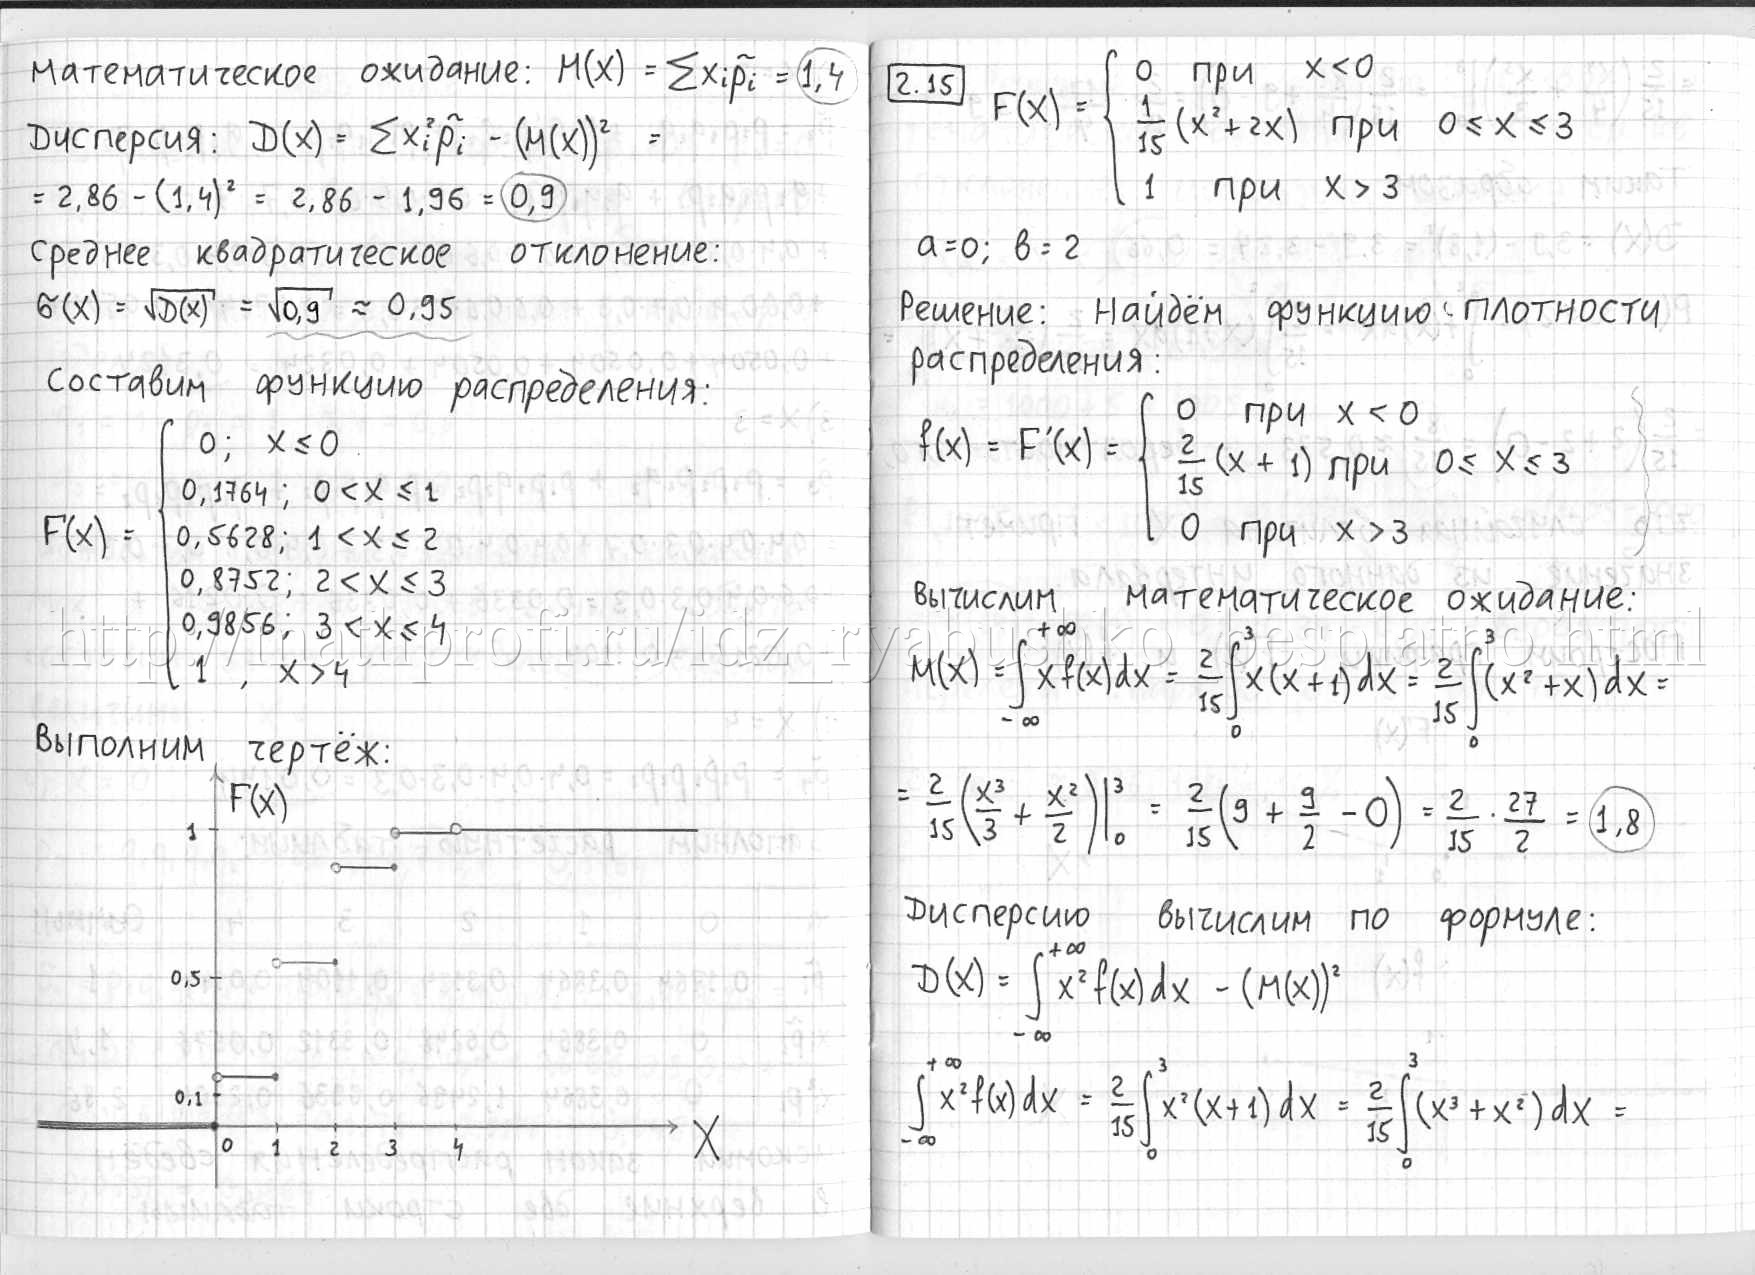 Математическое ожидание: M(X) = ∑xᵢp̃ᵢ = 1,4
Дисперсия: D(X) = ∑xᵢ²p̃ᵢ - (M(X))² =
= 2,86 - (1,4)² = 2,86 - 1,96 = 0,9
Среднее квадратическое отклонение:
σ(X) = √D(X) = √0,9 ≈ 0,95
Составим функцию распределения:
F(x) = {
0; x ≤ 0
0,1764; 0 < x ≤ 1
0,5628; 1 < x ≤ 2
0,8752; 2 < x ≤ 3
0,9856; 3 < x ≤ 4
1, x > 4
Выполним чертёж:
F(X)
1
0,5
0,1
0 1 2 3 4 X
2.15
F(X) = {
0 при x < 0
1/15 (x² + 2x) при 0 ≤ x ≤ 3
1 при x > 3
a=0; в=2
Решение: Найдём функцию плотности
распределения:
f(x) = F'(x) = {
0 при x < 0
2/15 (x + 1) при 0 ≤ x ≤ 3
0 при x > 3
Вычислим математическое ожидание:
M(X) = ∫₋∞^+∞ x f(x) dx = 2/15 ∫₀³ x(x+1) dx = 2/15 ∫₀³ (x² + x) dx =
= 2/15 (x³/3 + x²/2)|₀³ = 2/15 (9 + 9/2 - 0) = 2/15 · 27/2 = 1,8
Дисперсию вычислим по формуле:
D(X) = ∫₋∞^+∞ x² f(x) dx - (M(X))²
∫₋∞^+∞ x² f(x) dx = 2/15 ∫₀³ x²(x+1) dx = 2/15 ∫₀³ (x³ + x²) dx =
http://mathprofi.ru/idz_ryabushko_besplatno.html